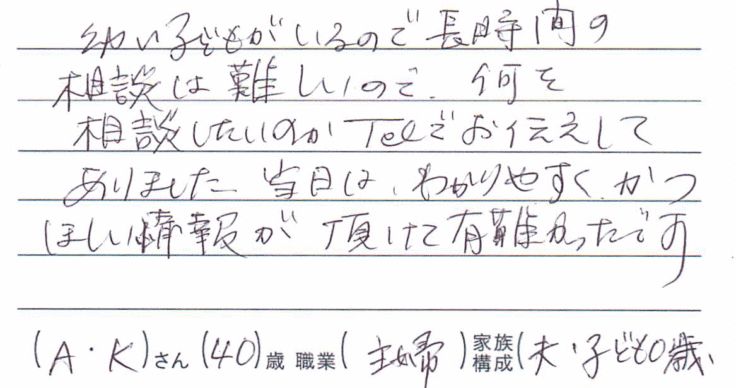 幼い子どもがいるので長時間の
相談は難しいので、何を
相談したいのかTelでお伝えして
ありました。当日は、わかりやすく、かつ
ほしい情報が頂けて有難かったです
(A・K)さん(40)歳 職業(主婦)家族構成(夫・子ども0歳、